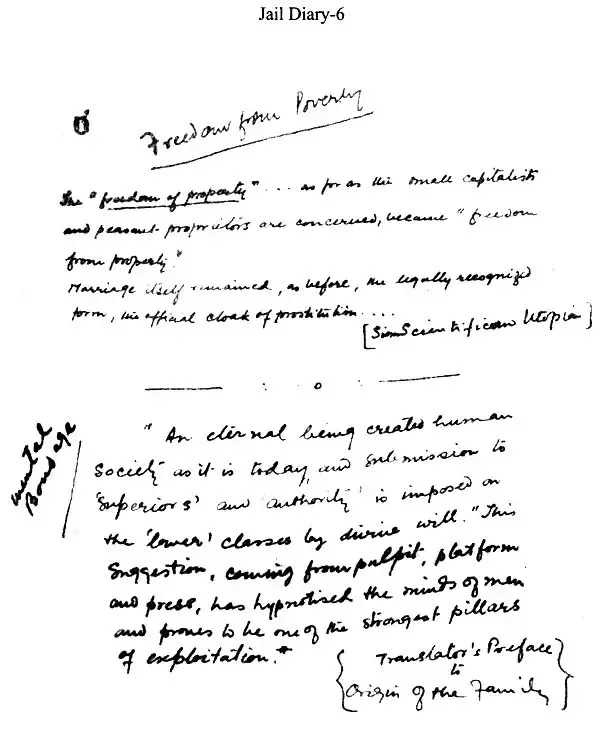 Jail Diary-6
Freedom from Poverty
The "freedom of property" . . . as for as the small capitalists
and peasant proprietors are concerned, became "freedom
from property."
Marriage itself remained, as before, the legally recognized
form, the official cloak of prostitution . . . .
Utopian]
"An eternal being created human
Society as it is today, and submission to
'superiors' and 'authority' is imposed on
the 'lower' classes by divine will." This
Suggestion, coming from pulpit, platform
and press, has hypnotised the minds of men
and proves to be one of the strongest pillars
of exploitation."
mental
Bondage
{Translator's Preface
to
Origin of the Family}